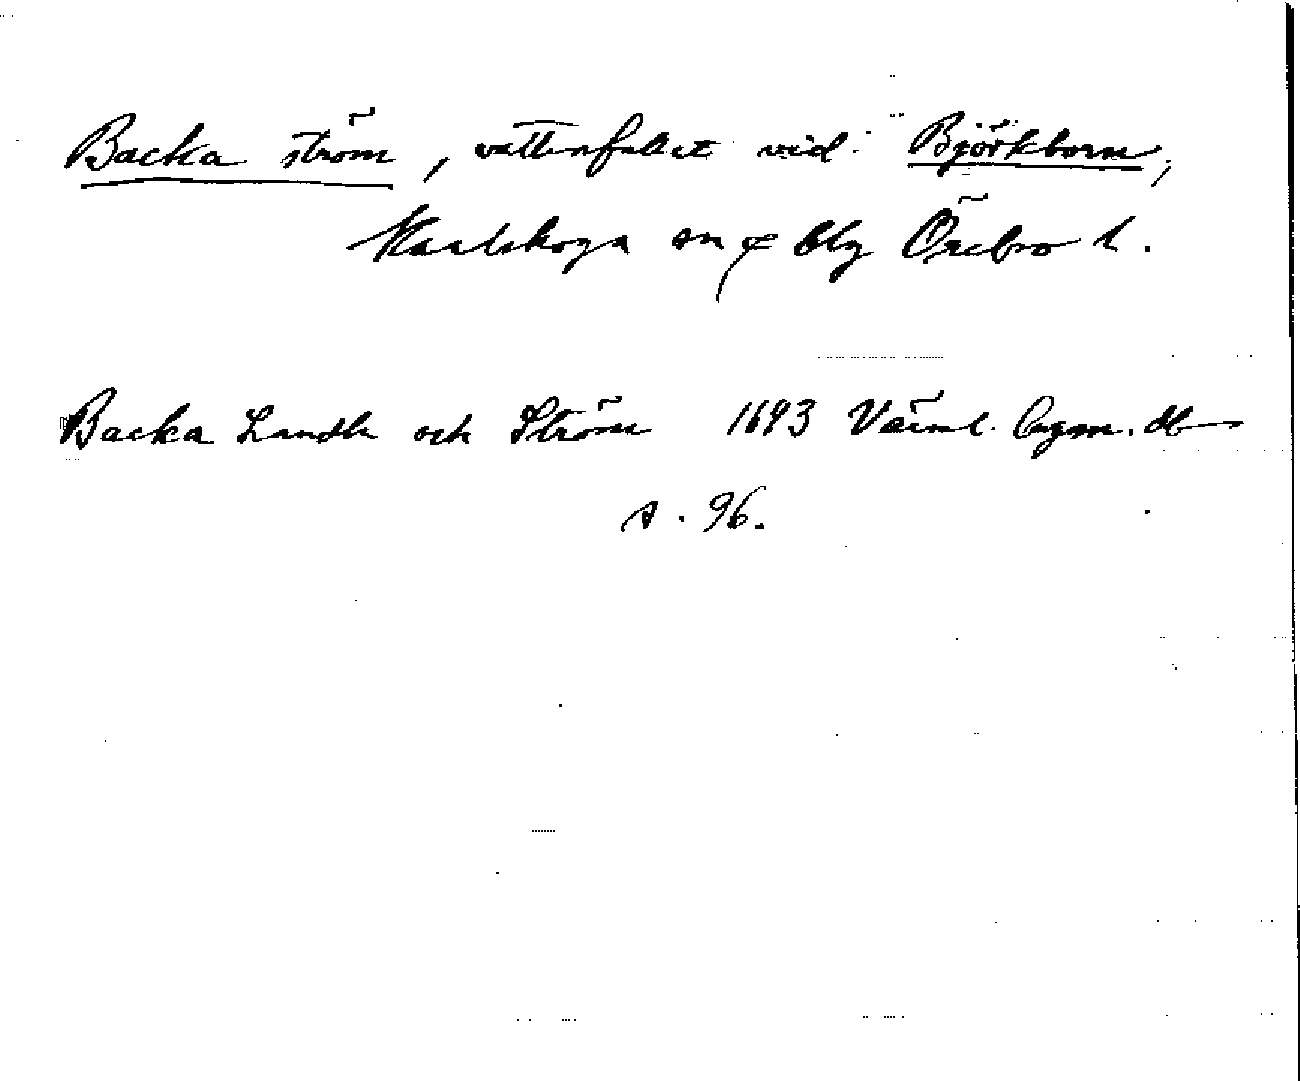 Backa ström, vattenfallet vid Björkborn,
Karlskoga sn & blg Örebro l.
Backa Landh och Ström 1693 Värml. Bygm. db
s. 96.